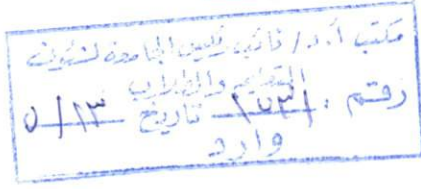 مكتب أ.د/ نائب رئيس الجامعة لشئون
التعليم والطلاب
رقم : ٢٧٣١ تاريخ ٥/١٣
وارد